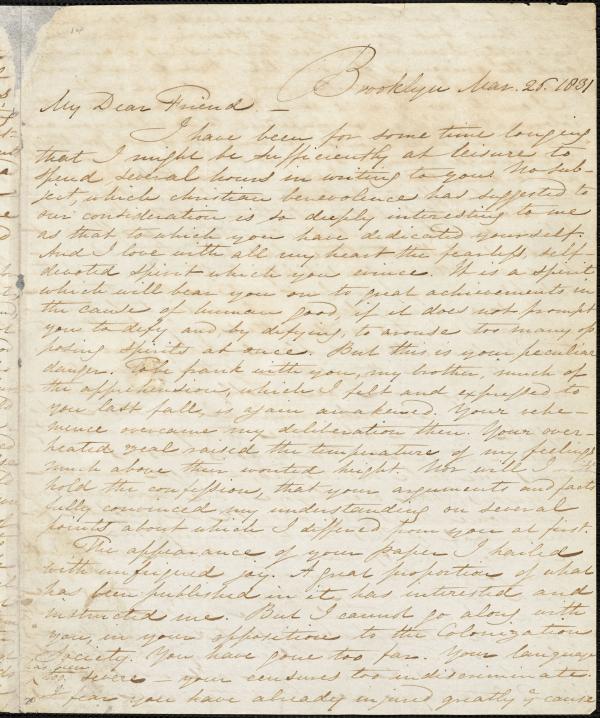 Brooklyn Mar. 26. 1831
My Dear Friend —
I have been for some time longing
that I might be sufficiently at leisure to
spend several hours in writing to you. No sub-
ject, which christian benevolence has suggested to
our consideration is so deeply interesting to me
as that to which you have dedicated yourself.
And I love with all my heart the fearless, self
devoted spirit which you evince. It is a spirit
which will bear you on to great achievements in
the cause of human good, if it does not prompt
you to defy, and by defying, to arouse too many op
posing spirits at once. But this is your peculiar
danger. To be frank with you, my brother, much of
the apprehension, which I felt and expressed to
you last fall, is again awakened. Your vehe-
mence overcame my deliberation then. Your over-
heated zeal raised the temperature of my feelings
much above their wonted hight. Nor will I
hold the confession, that your arguments and facts
fully convinced my understanding on several
points about which I differed from you at first.
The appearance of your paper I hailed
with unfeigned joy. A great proportion of what
has been published in it, has interested and
instructed me. But I cannot go along with
you, in your opposition to the Colonization
Society. You have gone too far. Your language
has been
too severe — your censures too indiscriminate.
I fear you have already injured greatly ye cause